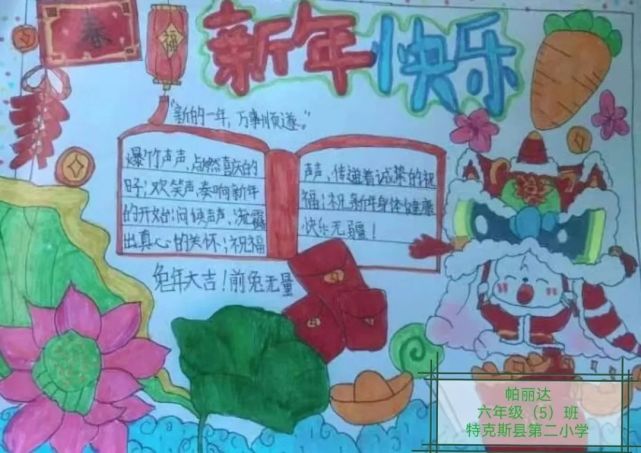 春
福
新年快乐
"新的一年，万事顺遂。"
爆竹声声，点燃喜庆的
好；欢笑声奏响新年
的开始；问候声声，流露
出真心的关怀；祝福
声声，传递着诚挚的祝
福；祝新年身体健康
快乐无疆！
兔年大吉！前兔无量
帕丽达
六年级（5）班
特克斯县第二小学